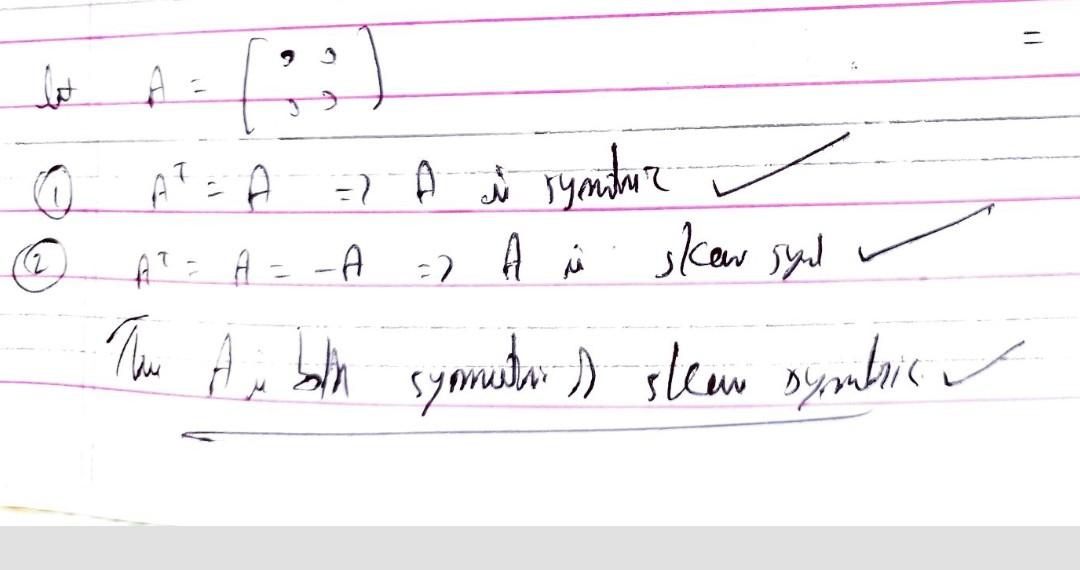 let A = [ 0 0
0 0 ]
=
① Aᵀ = A => A is symmetric ✓
② Aᵀ = A = -A => A is skew sym ✓
Thus A is both symmetric & skew symmetric ✓